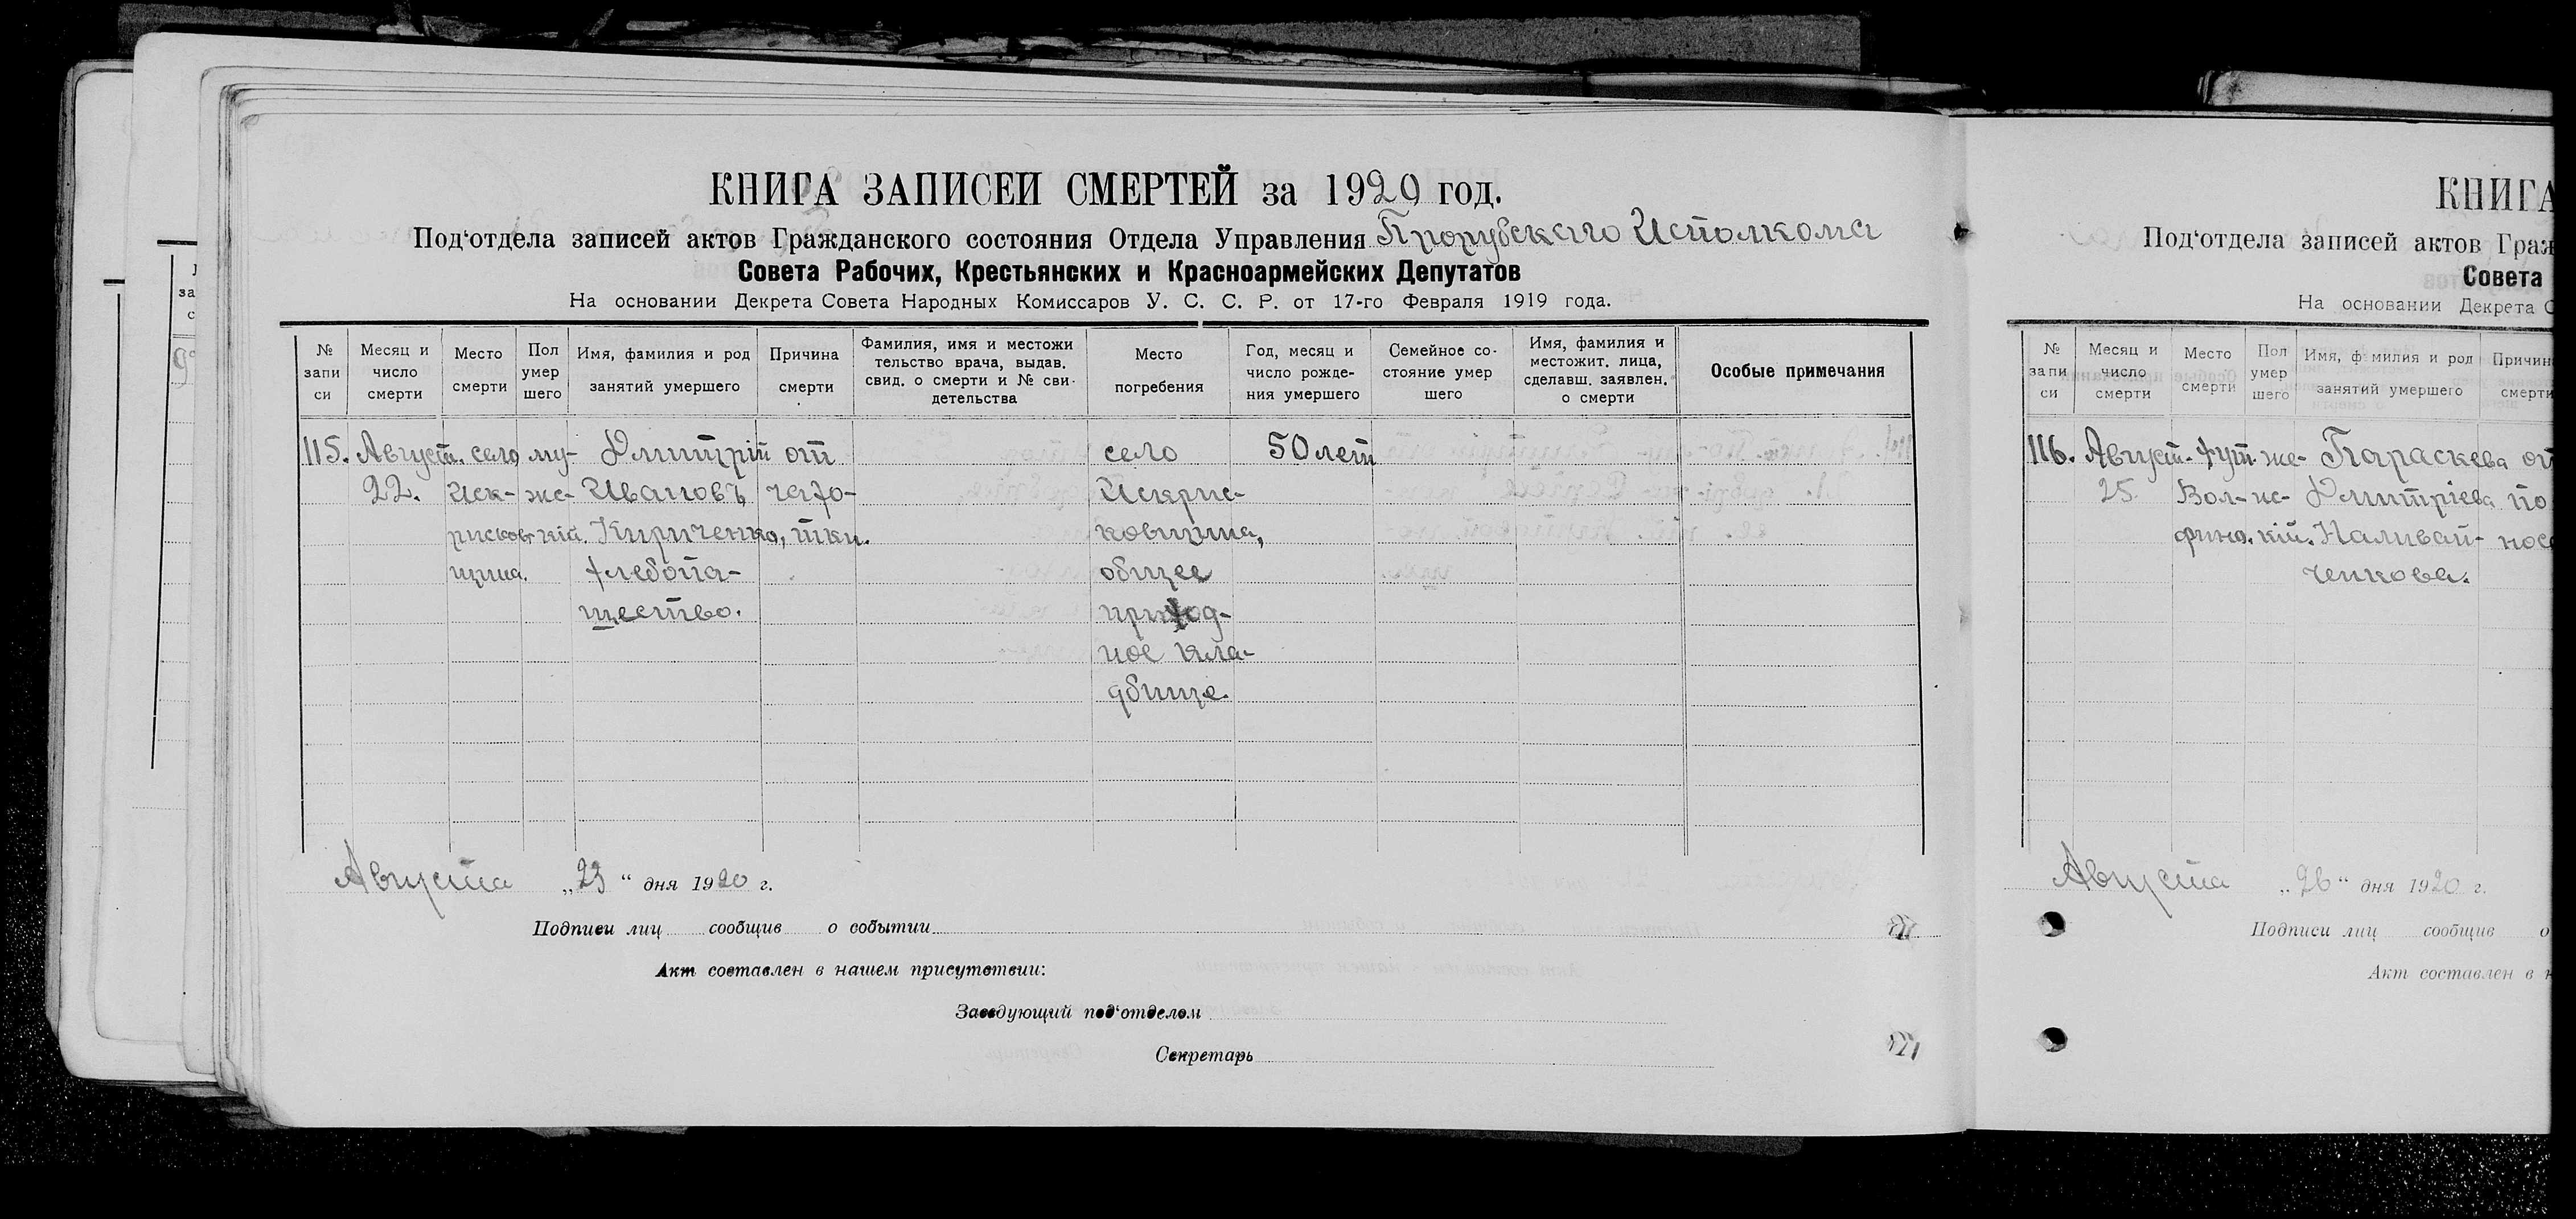 КНИГА ЗАПИСЕЙ СМЕРТЕЙ за 1920 год.
Под‘отдела записей актов Гражданского состояния Отдела Управления Прорубскаго Исполкома
Совета Рабочих, Крестьянских и Красноармейских Депутатов
На основании Декрета Совета Народных Комиссаров У. С. С. Р. от 17-го Февраля 1919 года.
№ запи си
Месяц и число смерти
Место смерти
Пол умер шего
Имя, фамилия и род занятий умершего
Причина смерти
Фамилия, имя и местожи тельство врача, выдав. свид. о смерти и № сви- детельства
Место погребения
Год, месяц и число рожде- ния умершего
Семейное со- стояние умер шего
Имя, фамилия и местожит. лица, сделавш. заявлен. о смерти
Особые примечания
115. Август. село му- Димитрій от село 50 лет
22. Иск- жс- Ивановъ чахо- Искрис-
рисков- кій. Кириченко, тки. ковщина,
щина. хлебопа- общее
шество. приход-
ное кла-
дбище.
Августа „23“ дня 1920 г.
Подписи лиц сообщив о событии
Акт составлен в нашем присутствии:
Заведующий под‘отделом
Секретарь
КНИГА
Под‘отдела записей актов Граж
Совета
На основании Декрета С
№ запи си
Месяц и число смерти
Место смерти
Пол умер шего
Имя, фамилия и род занятий умершего
Причин смерти
116. Август. хут. же- Параскева от
25 Вол- нс- Димитріева по
фино. кій. Наливай- нос
ченкова.
Августа „26“ дня 1920 г.
Подписи лиц сообщив о
Акт составлен в н